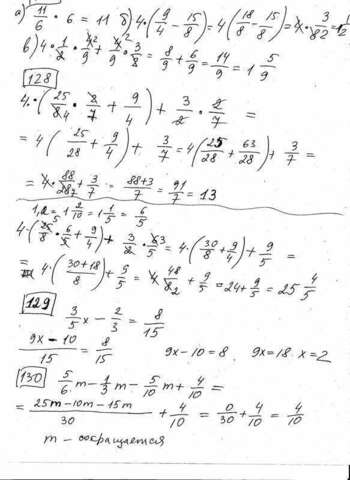 а) 11/6 · 6 = 11 б) 4·(9/4 − 15/8) = 4(18/8 − 15/8) = 4 · 3/82 = 1 1/2
в) 4 · 1/2 · 4²/9 + 4²/9 · 3/8 = 8/9 + 6/9 = 14/9 = 1 5/9
128
4·(25/84 · 8/7 + 9/4) + 3/2 · 2/7 =
= 4(25/28 + 9/4) + 3/7 = 4(25/28 + 63/28) + 3/7 =
= 4 · 88/287 + 3/7 = 88+3/7 = 91/7 = 13
1,2 = 1 2/10 = 1 1/5 = 6/5
4·(25/8 · 6/5 + 9/4) + 3/2 · 63/5 = 4·(30/8 + 9/4) + 9/5 =
= 4·(30+18/8) + 9/5 = 4 48/82 + 9/5 = 24 + 9/5 = 25 4/5
129
3/5 x − 2/3 = 8/15
9x − 10/15 = 8/15 9x − 10 = 8. 9x = 18. x = 2
130 5/6 m − 1/3 m − 5/10 m + 4/10 =
= 25m − 10m − 15m/30 + 4/10 = 0/30 + 4/10 = 4/10
m − сокращается